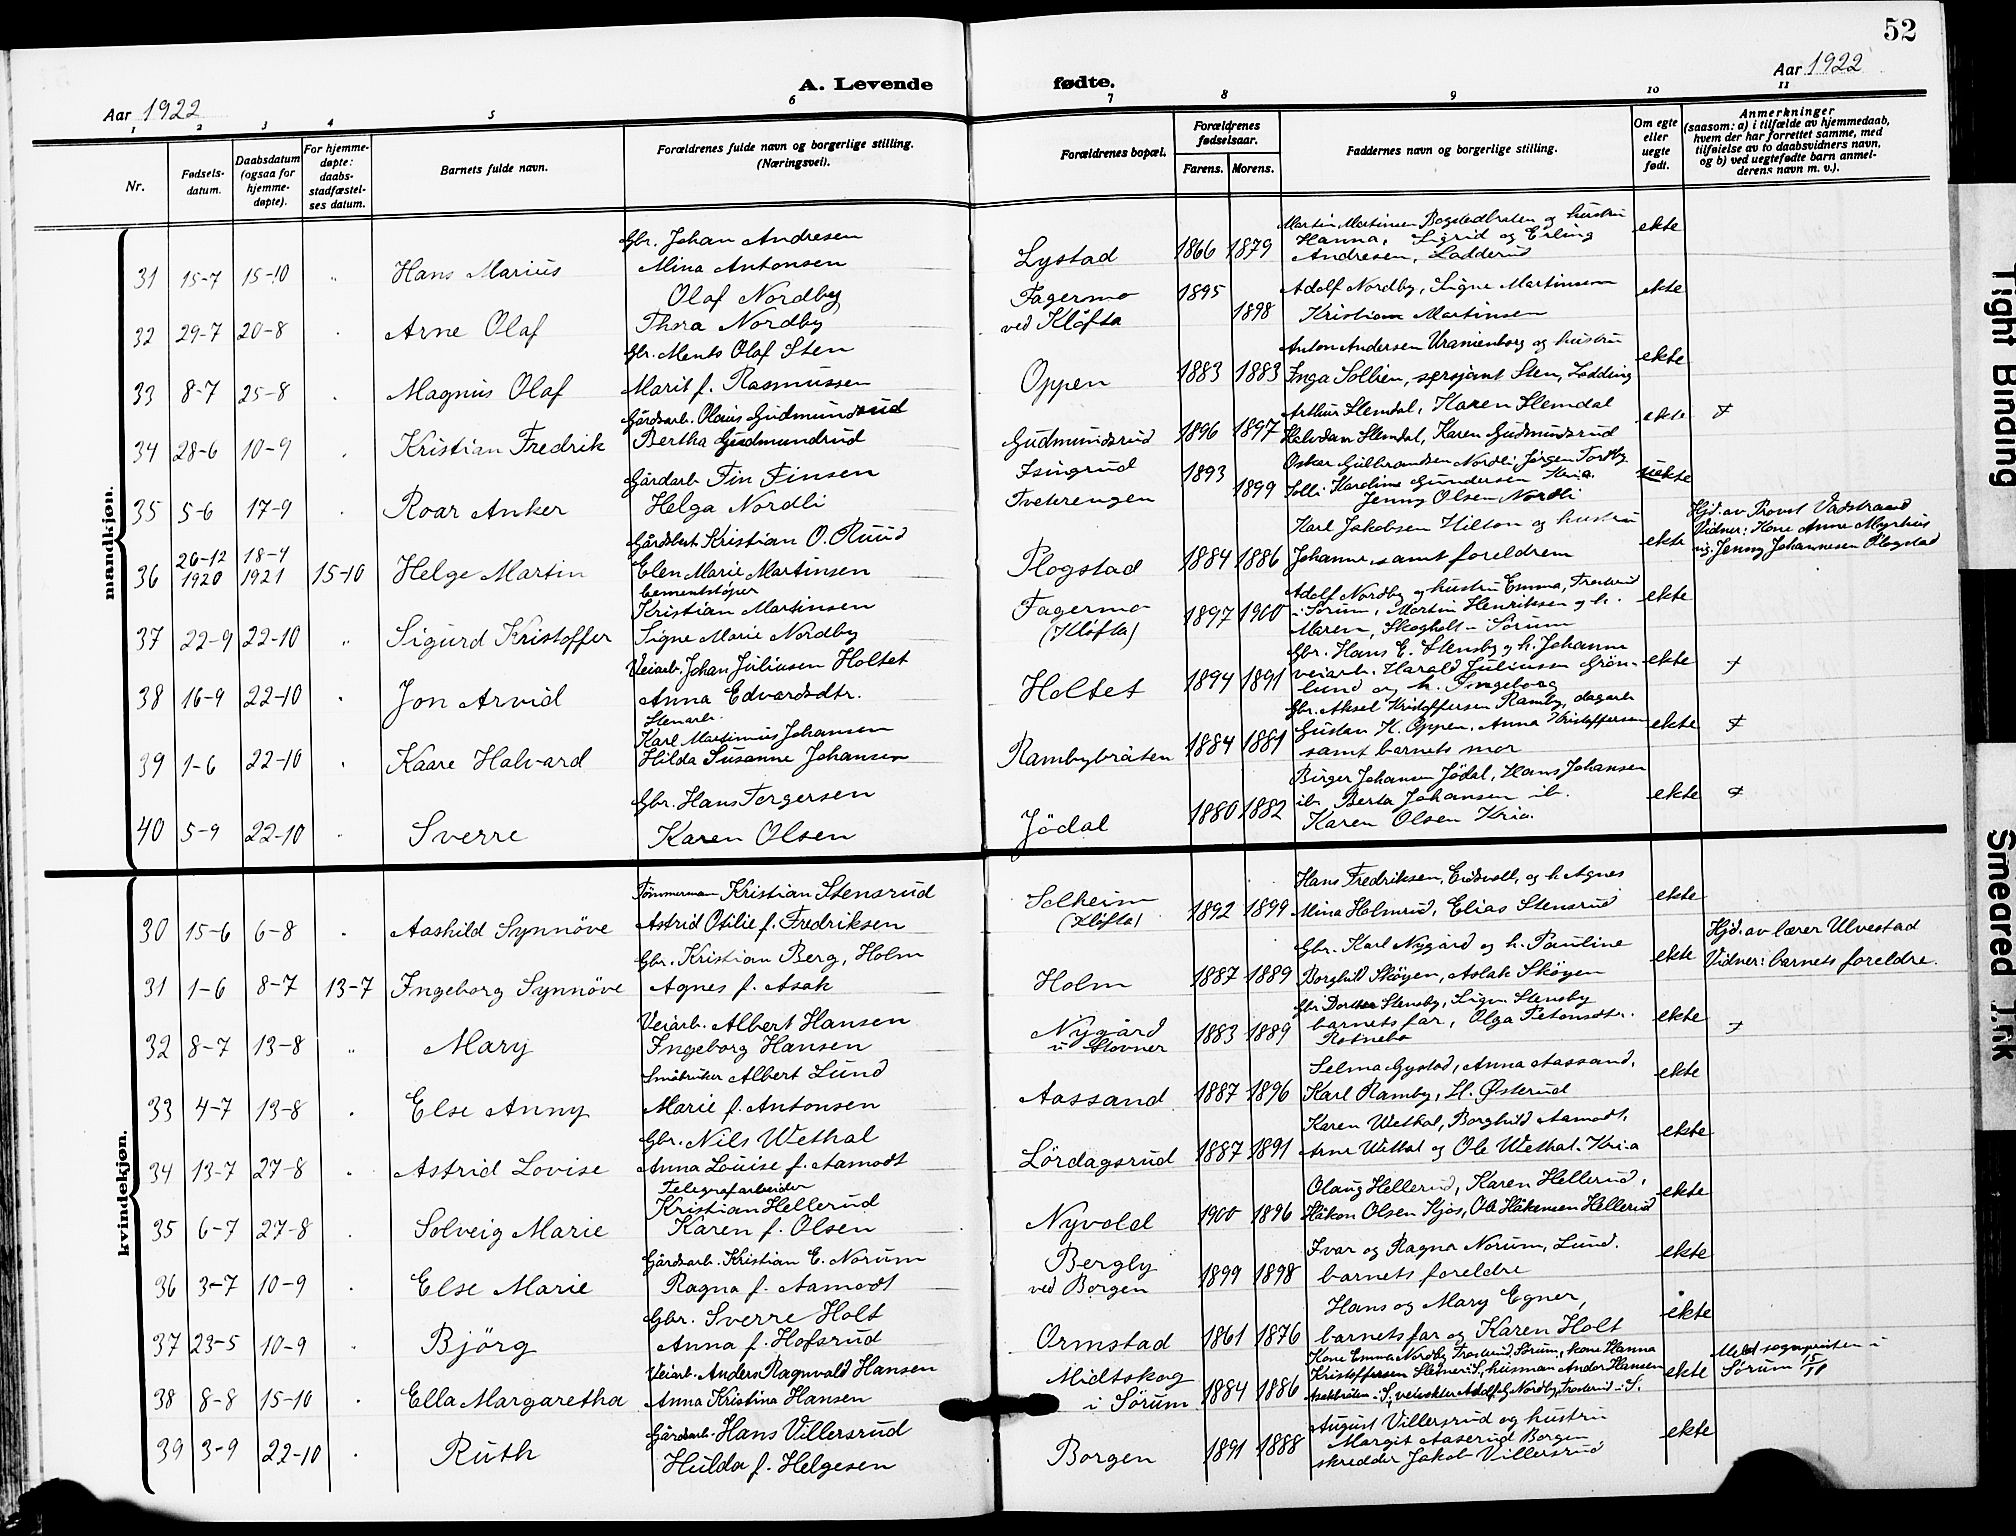 52
Aar 1922
A. Levende fødte.
Aar 1922
1 2 3 4 5 6 7 8 9 10 11
Nr.
Fødsels-
datum.
Daabsdatum
(ogsaa for
hjemme-
døpte).
For hjemme-
døpte:
daabs-
stadfæstel-
ses datum.
Barnets fulde navn.
Forældrenes fulde navn og borgerlige stilling.
(Næringsvei).
Forældrenes bopæl.
Forældrenes
fødselsaar.
Farens. Morens.
Faddernes navn og borgerlige stilling.
Om egte
eller
uegte
født.
Anmerkninger
(saasom: a) i tilfælde av hjemmedaab,
hvem der har forrettet samme, med
tilføielse av to daabsvidners navn,
og b) ved uegtefødte barn anmel-
derens navn m. v.).
mandkjøn.
31 15-7 15-10 " Hans Marius
Gbr. Johan Andresen
Mina Antonsen
Lystad 1866 1879
Martin Martinsen Bogstadbraten og hustru
Hanna, Sigrid og Erling
Andresen, Ladderud
ekte
32 29-7 20-8 " Arne Olaf
Olaf Nordby
Thora Nordby
Fagermo
ved Kløfta
1895 1898
Adolf Nordby, Signe Martinsen
Kristian Martinsen
ekte
33 8-7 25-8 " Magnus Olaf
Gbr. Ments Olaf Sten
Marit f. Rasmussen
Oppen 1883 1883
Anton Andersen Uranienborg og hustru
Inga Sollien, sersjant Sten, Ladding
ekte
34 28-6 10-9 " Kristian Fredrik
Gårdsarb. Olaus Gudmundsrud
Bertha Gudmundrud
Gudmundsrud 1896 1897
Arthur Slemdal, Karen Slemdal
Halvdan Slemdal, Karen Gudmundsrud
ekte +
35 5-6 17-9 " Roar Anker
Gårdarb. Fin Finsen
Helga Nordli
Isingrud
Tveterengen
1893 1899
Oskar Gulbrandsen Nordli, Jørgen Tordby
Solli. Karoline Gundersen Kria.
Jenny Olsen Nordli
uekte
36 26-12 1920 18-4 1921 15-10 Helge Martin
Gårdsbest Kristian O. Ruud
Elen Marie Martinsen
Plogstad 1884 1886
Karl Jakobsen Hilton og hustru
Johanne samt foreldrene
ekte
Hjd. av Provst Vadstrand
Vidner: Kone Anne Myrhus
og Jenny Johannesen Plogstad
37 22-9 22-10 " Sigurd Kristoffer
Cementstøper
Kristian Martinsen
Signe Marie Nordby
Fagermo
(Kløfta)
1897 1900
Adolf Nordby og hustru Emma, Frosterud
i Sørum, Martin Henriksen og h.
Maren, Skogholt i Sørum
ekte
38 16-9 22-10 " Jon Arvid
Veiarb. Johan Juliusen Holtet
Anna Edvardsdtr.
Holtet 1894 1891
Gbr. Hans E. Stensby og h. Johanne
veiarb. Harald Juliussen Grøn-
lund og h. Ingeborg
ekte +
39 1-6 22-10 " Kaare Halvard
Stenarb.
Karl Martinius Johansen
Hilda Susanne Johansen
Rambybråten 1884 1881
Gbr. Aksel Kristoffersen Ramby, dagarb
Gustav K. Oppen, Anna Kristoffersen
samt barnets mor
ekte +
40 5-9 22-10 " Sverre
Gbr. Hans Torgersen
Karen Olsen
Jødal 1880 1882
Birger Johansen Jødal, Hans Johansen
ib. Berta Johansen ib.
Karen Olsen Kria.
ekte +
kvindekjøn.
30 15-6 6-8 " Aashild Synnöve
Tømmermann Kristian Stensrud
Astrid Otilie f. Fredriksen
Solheim
(Kløfta)
1892 1899
Hans Fredriksen, Eidsvoll, og h. Agnes
Mina Holmrud, Elias Stensrud
ekte
31 1-6 8-7 13-7 Ingeborg Synnöve
Gbr. Kristian Berg, Holm
Agnes f. Asak
Holm 1887 1889
Gbr. Karl Nygård og h. Pauline
Borghild Skøyen, Aslak Skøyen
ekte
Hjd. av lærer Ulvestad
Vidner: barnets foreldre.
32 8-7 13-8 " Mary
Veiarb. Albert Hansen
Ingeborg Hansen
Nygård
u. Hovner
1883 1889
Gbr. Dorthea Stensby, Sigv. Stensby
barnets far, Olga Petonsdtr.
Rotnebo
ekte +
33 4-7 13-8 " Else Anny
Småbruker Albert Lund
Marie f. Antonsen
Aassand 1887 1896
Selma Gystad, Anna Aassand,
Karl Ramby, H. Østerud
ekte
34 13-7 27-8 " Astrid Lovise
Gbr. Nils Wethal
Anna Louise f. Aamodt
Lördagsrud 1887 1891
Karen Wethal, Borghild Aamodt,
Arne Wethal og Ole Wethal. Kri.a
ekte
35 6-7 27-8 " Solveig Marie
Telegrafarbeider
Kristian Hellerud
Karen f. Olsen
Nyvold 1900 1896
Olaug Hellerud, Karen Hellerud,
Håkon Olsen Kjos, Ole Håkensen Hellerud
ekte
36 3-7 10-9 " Else Marie
Gårdsarb. Kristian E. Norum
Ragna f. Aamodt
Bergby
ved Borgen
1899 1898
Ivar og Ragna Norum, Lund.
barnets foreldre
ekte
37 23-5 10-9 " Bjørg
Gbr. Sverre Holt
Anna f. Hofsrud
Ormstad 1861 1876
Hans og Mary Egner,
barnets far og Karen Holt
ekte
38 8-8 15-10 " Ella Margaretha
Veiarb. Anders Ragnvald Hansen
Anna Kristina Hansen
Midtskog
i Sørum
1884 1886
Kone Emma Nordby Frosterud, Sørum, kone Hanna
Kristoffersen i S., husman Ander Hansen
Asakbråten i S, Adolf G Nordby, Frosterud i S.
ekte
Meldt sogneprsten i
Sørum 15/10
39 3-9 22-10 " Ruth
Gårdsarb. Hans Villersrud
Hulda f. Helgesen
Borgen 1891 1888
August Villersrud og hustru
Margit Aaserud Borgen
skredder Jakob Villersrud
ekte
Tight Binding
Smeared Ink